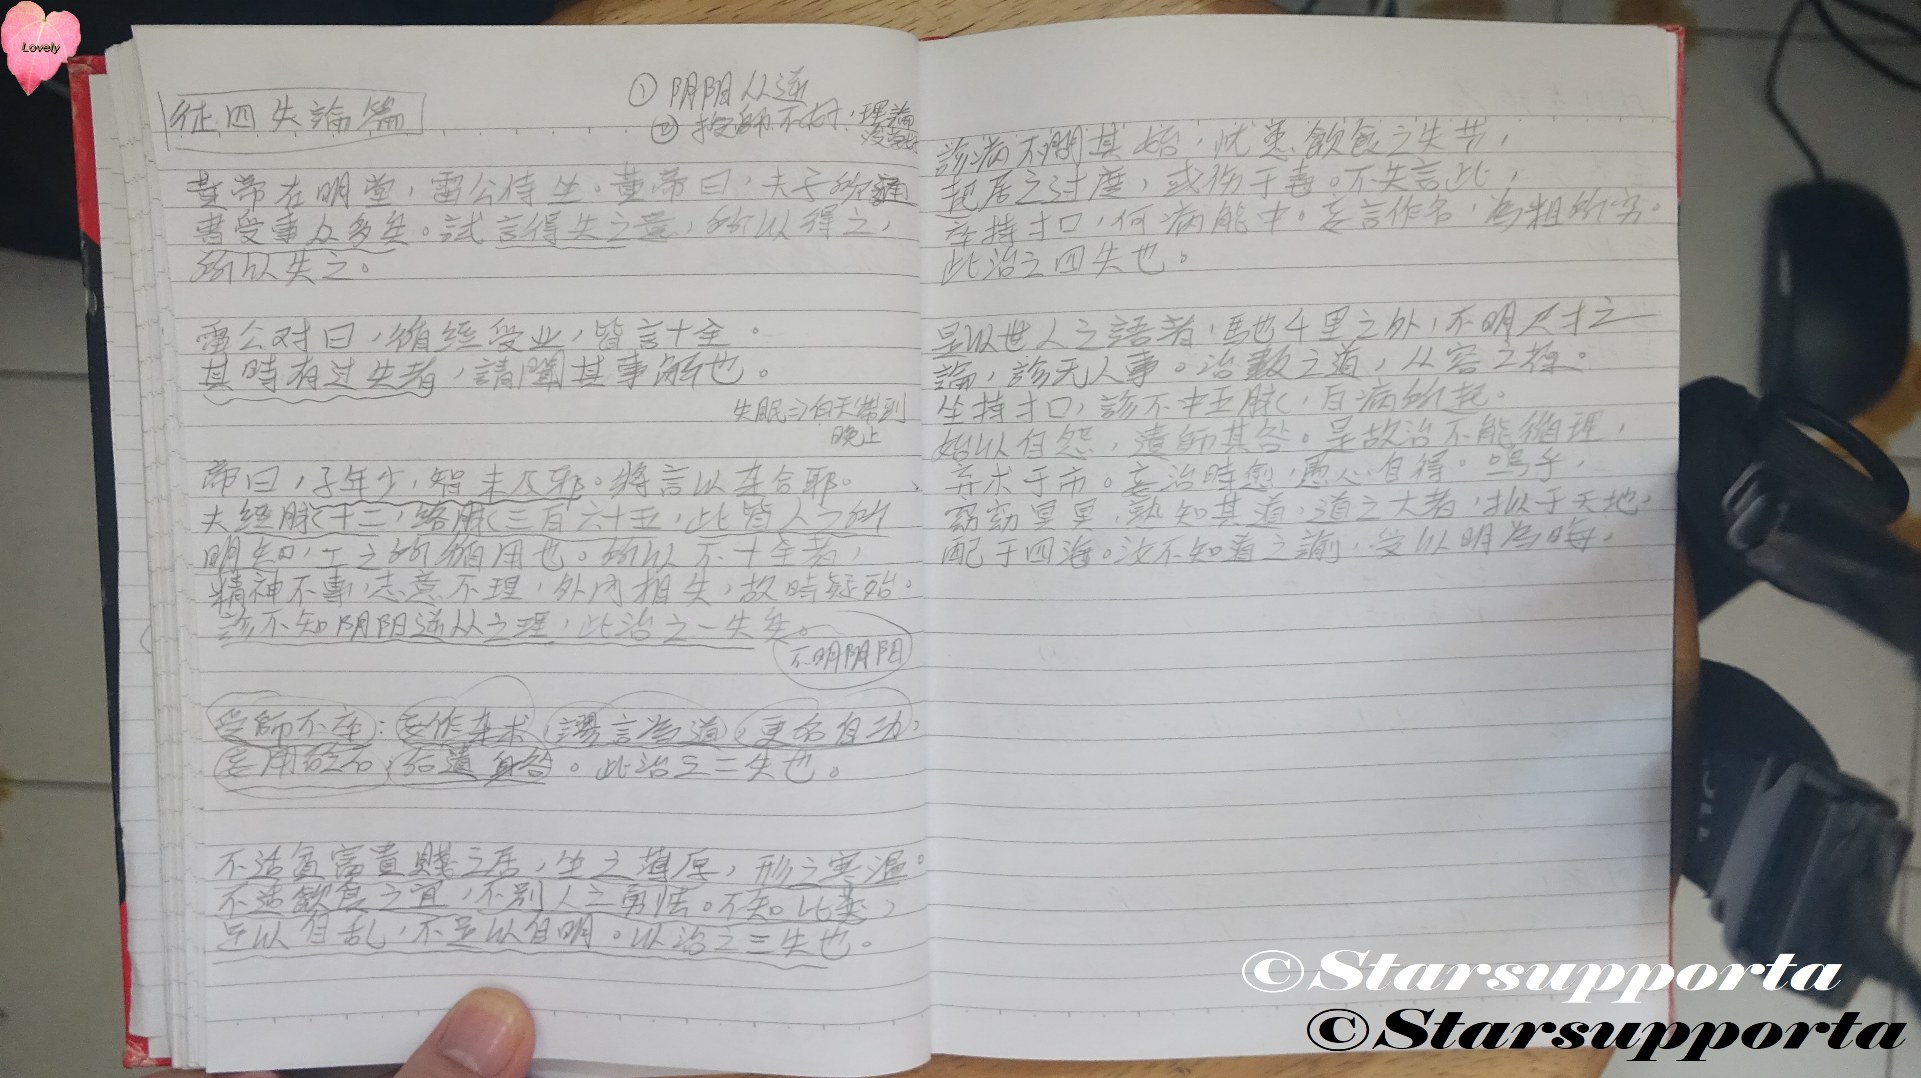 Lovely
征四失論篇
① 阴阳从逆
② 授師不对,理論
黄帝在明堂,雷公侍坐。黄帝曰,夫子所通
書受事众多矣。試言得失之意,所以得之,
所以失之。
雷公对曰,循經受业,皆言十全。
其時有过失者,請聞其事解也。
失眠⇒白天得到
晚上
帝曰,子年少,智未及邪。将言以杂合耶。
夫經脉十二,络脉三百六十五,此皆人之所
明知,工之所循用也。所以不十全者,
精神不專,志意不理,外内相失,故時疑殆。
診不知阴阳逆从之理,此治之一失矣。
不明阴阳
受師不卒:妄作杂术,謬言為道,更名自功,
妄用砭石,后遺身咎。此治之二失也。
不适貧富貴賤之居,坐之薄厚,形之寒温。
不适飲食之宜,不别人之勇怯。不知比类,
足以自乱,不足以自明。以治之三失也。
診病不問其始,忧患飲食之失节,
起居之过度,或伤于毒。不失言此,
卒持寸口,何病能中。妄言作名,為粗所穷。
此治之四失也。
是以世人之語者,馳千里之外,不明尺寸之
論,診无人事。治數之道,从容之葆。
坐持寸口,診不中五脉,百病所起。
始以自怨,遺師其咎。是故治不能循理,
弃术于市。妄治時愈,愚心自得。嗚乎,
窈窈冥冥,熟知其道。道之大者,拟于天地,
配于四海。汝不知道之諭,受以明為晦。
©Starsupporta
©Starsupporta